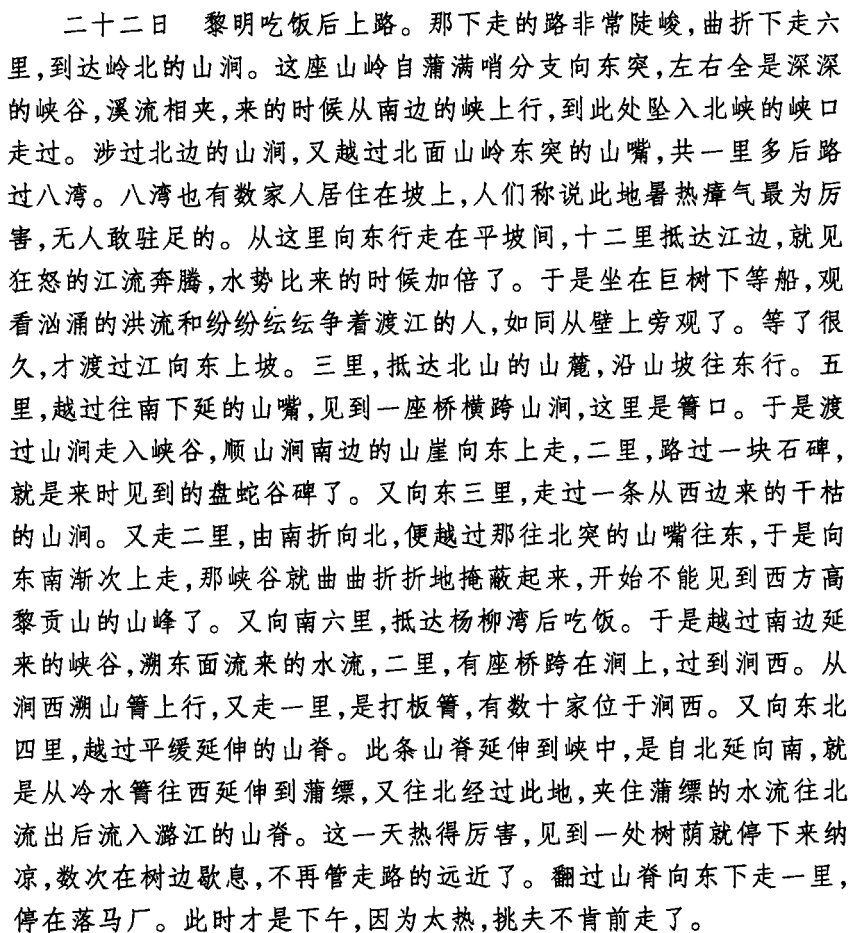 二十二日　黎明吃饭后上路。那下走的路非常陡峻,曲折下走六
里,到达岭北的山涧。这座山岭自蒲满哨分支向东突,左右全是深深
的峡谷,溪流相夹,来的时候从南边的峡上行,到此处坠入北峡的峡口
走过。涉过北边的山涧,又越过北面山岭东突的山嘴,共一里多后路
过八湾。八湾也有数家人居住在坡上,人们称说此地暑热瘴气最为厉
害,无人敢驻足的。从这里向东行走在平坡间,十二里抵达江边,就见
狂怒的江流奔腾,水势比来的时候加倍了。于是坐在巨树下等船,观
看汹涌的洪流和纷纷纭纭争着渡江的人,如同从壁上旁观了。等了很
久,才渡过江向东上坡。三里,抵达北山的山麓,沿山坡往东行。五
里,越过往南下延的山嘴,见到一座桥横跨山涧,这里是箐口。于是渡
过山涧走入峡谷,顺山涧南边的山崖向东上走,二里,路过一块石碑,
就是来时见到的盘蛇谷碑了。又向东三里,走过一条从西边来的干枯
的山涧。又走二里,由南折向北,便越过那往北突的山嘴往东,于是向
东南渐次上走,那峡谷就曲曲折折地掩蔽起来,开始不能见到西方高
黎贡山的山峰了。又向南六里,抵达杨柳湾后吃饭。于是越过南边延
来的峡谷,溯东面流来的水流,二里,有座桥跨在涧上,过到涧西。从
涧西溯山箐上行,又走一里,是打板箐,有数十家位于涧西。又向东北
四里,越过平缓延伸的山脊。此条山脊延伸到峡中,是自北延向南,就
是从冷水箐往西延伸到蒲缥,又往北经过此地,夹住蒲缥的水流往北
流出后流入潞江的山脊。这一天热得厉害,见到一处树荫就停下来纳
凉,数次在树边歇息,不再管走路的远近了。翻过山脊向东下走一里,
停在落马厂。此时才是下午,因为太热,挑夫不肯前走了。